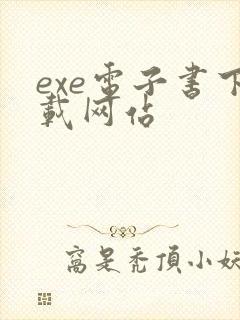 exe電子書下
載网佔
窩是禿頂小妖